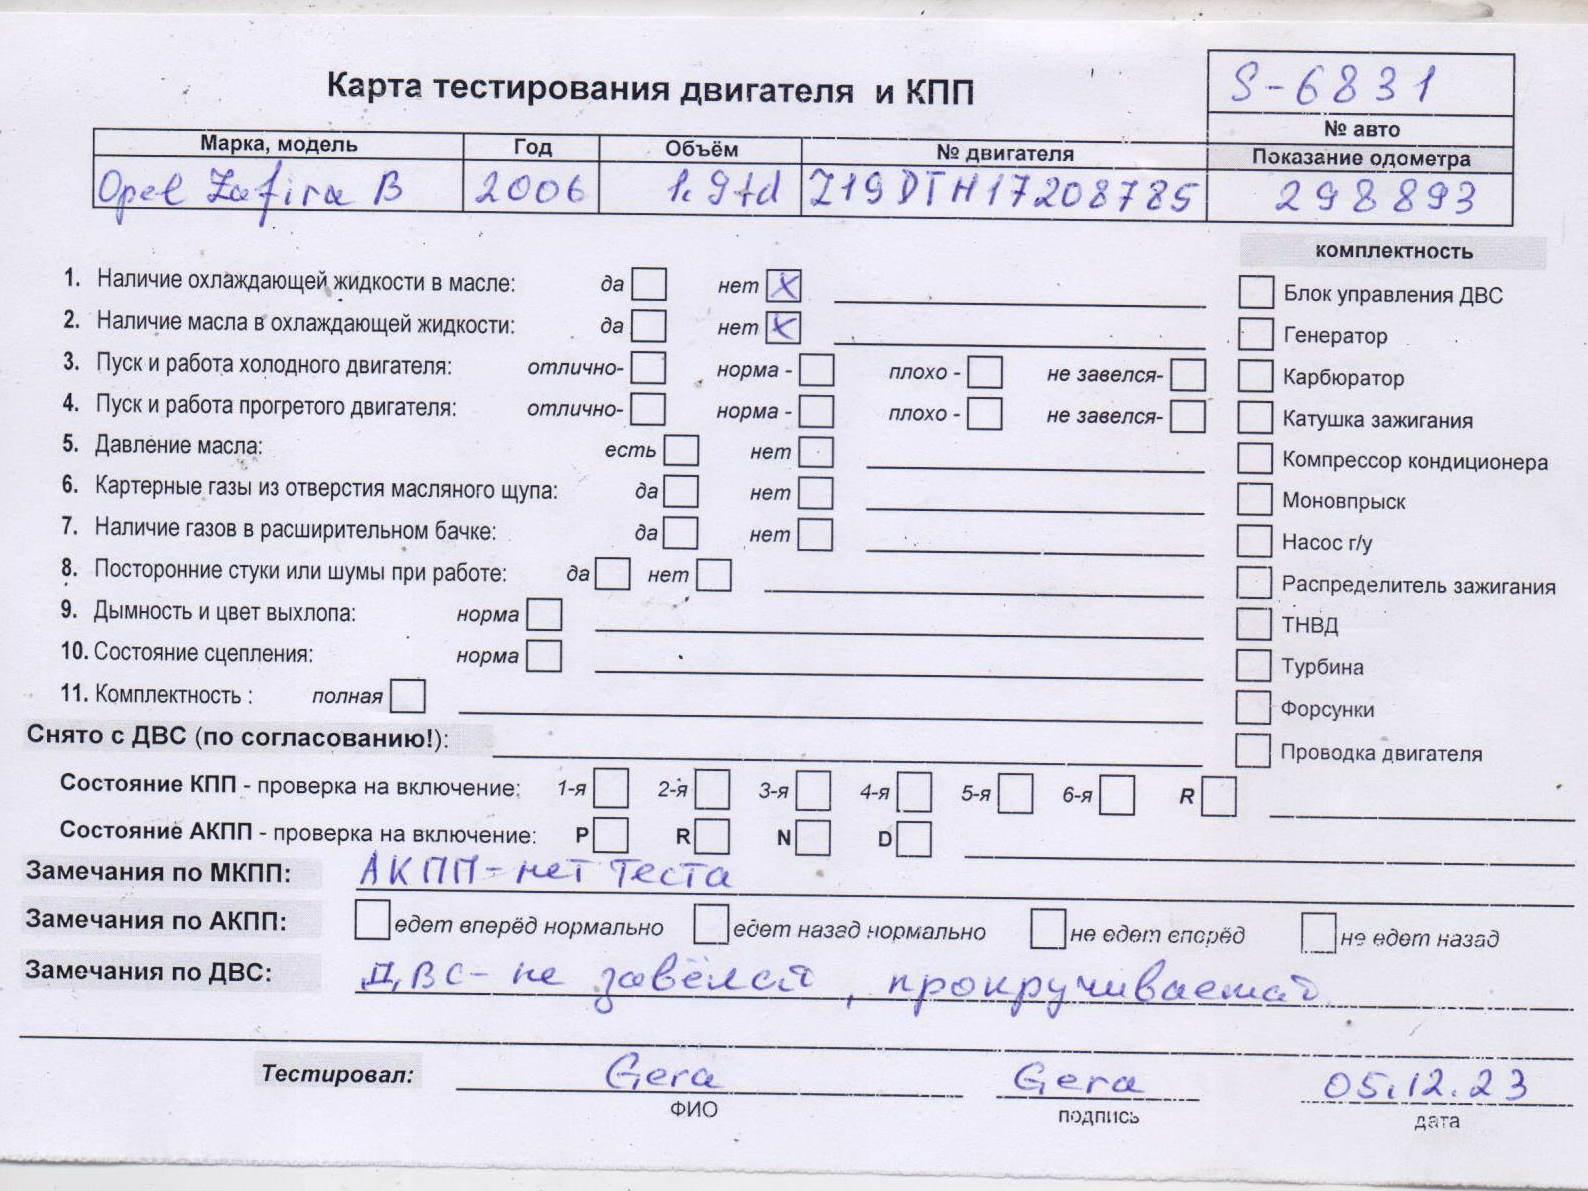 Карта тестирования двигателя и КПП
S-6831
№ авто
Марка, модель Год Объём № двигателя Показание одометра
Opel Zafira B 2006 1.9td Z19DTH17208785 298893
комплектность
1. Наличие охлаждающей жидкости в масле: да нет X
Блок управления ДВС
2. Наличие масла в охлаждающей жидкости: да нет X
Генератор
3. Пуск и работа холодного двигателя: отлично- норма - плохо - не завелся-
Карбюратор
4. Пуск и работа прогретого двигателя: отлично- норма - плохо - не завелся-
Катушка зажигания
5. Давление масла: есть нет
Компрессор кондиционера
6. Картерные газы из отверстия масляного щупа: да нет
Моновпрыск
7. Наличие газов в расширительном бачке: да нет
Насос г/у
8. Посторонние стуки или шумы при работе: да нет
Распределитель зажигания
9. Дымность и цвет выхлопа: норма
ТНВД
10. Состояние сцепления: норма
Турбина
11. Комплектность : полная
Форсунки
Снято с ДВС (по согласованию!):
Проводка двигателя
Состояние КПП - проверка на включение: 1-я 2-я 3-я 4-я 5-я 6-я R
Состояние АКПП - проверка на включение: P R N D
Замечания по МКПП: АКПП-нет теста
Замечания по АКПП: едет вперёд нормально едет назад нормально не едет вперёд не едет назад
Замечания по ДВС: ДВС- не завёлся, прокручивается
Тестировал: Gera Gera 05.12.23
ФИО подпись дата